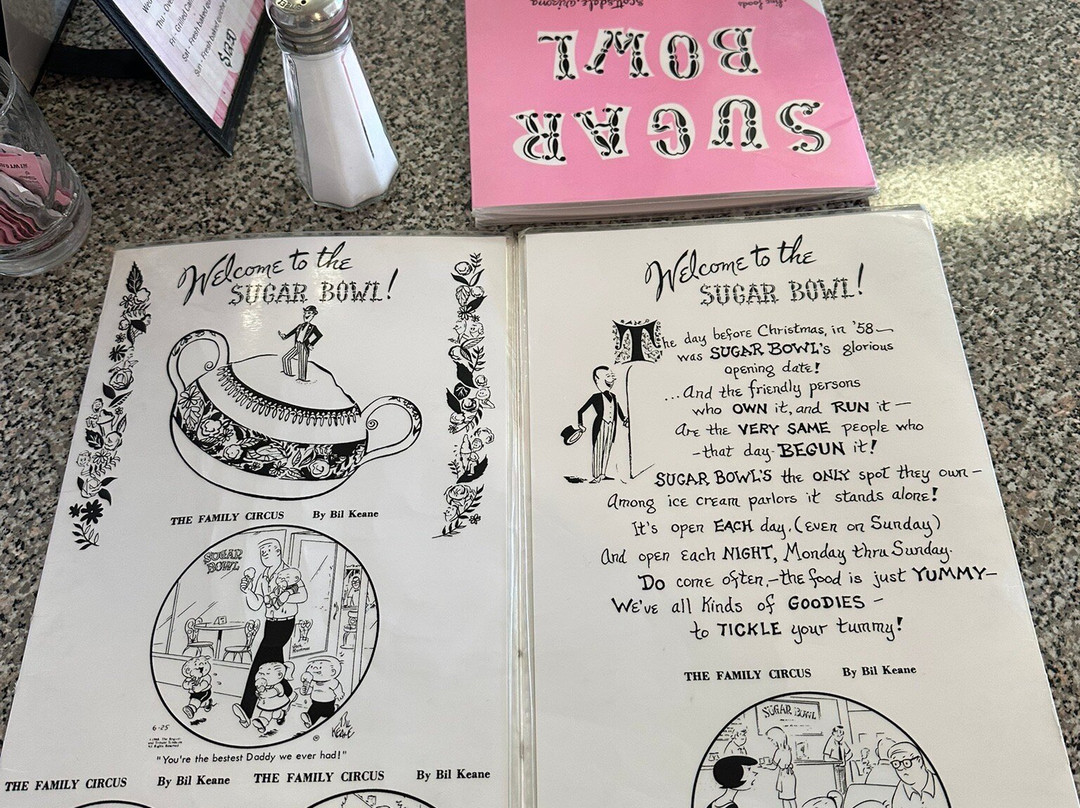 Thu - Ove
Fri - Grilled Ca
Sat - Fresh baked
Sun - Fresh baked
$12.50
Scottsdale, Arizona
fine foods
SUGAR
BOWL
Welcome to the
SUGAR BOWL!
THE FAMILY CIRCUS By Bil Keane
SUGAR
BOWL
6-25
"You're the bestest Daddy we ever had!"
THE FAMILY CIRCUS By Bil Keane
THE FAMILY CIRCUS By Bil Keane
Welcome to the
SUGAR BOWL!
The day before Christmas, in '58—
was SUGAR BOWL's glorious
opening date!
...And the friendly persons
who OWN it, and RUN it—
Are the VERY SAME people who
—that day—BEGUN it!
SUGAR BOWL'S the ONLY spot they own—
Among ice cream parlors it stands alone!
It's open EACH day, (even on Sunday)
And open each NIGHT, Monday thru Sunday.
Do come often,—the food is just YUMMY—
We've all kinds of GOODIES—
to TICKLE your tummy!
THE FAMILY CIRCUS By Bil Keane
SUGAR BOWL